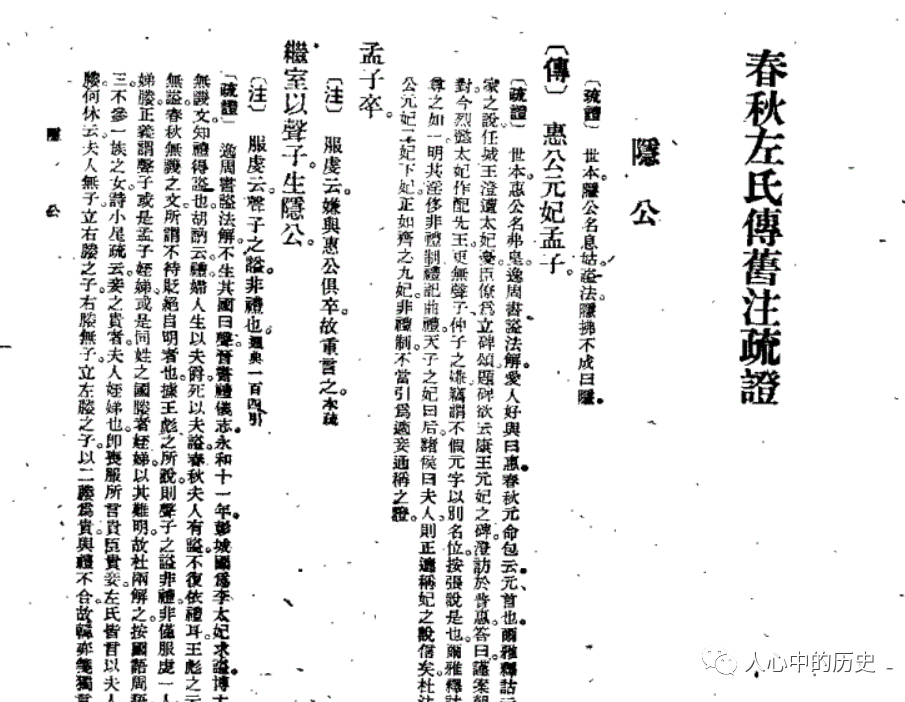 春秋左氏傳舊注疏證
隱公
〔疏證〕世本。隱公名息姑。謚法。隱拂不成曰隱。
〔傳〕惠公元妃孟子。
〔疏證〕世本。惠公名弗皇。逸周書謚法解。愛人好與曰惠。春秋元命包云。元首也。爾雅釋詁
之說。任城王澄遭太妃憂。臣僚爲立碑頌。題碑欲云康王元妃之碑。澄訪於普惠。答曰。謹案朝
對今烈懿太妃作配先王。更無聲子仲子之嫌。竊謂不假元字以別名位。按張說是也。爾雅釋詁
尊之如一。明其淫侈非禮制。禮記曲禮。天子之妃曰后。諸侯曰夫人。則正適稱妃之說信矣。杜注
公元妃二妃下妃。正如齊之九妃。非禮制。不當引爲適妾通稱之證。
孟子卒。
〔注〕服虔云。嫌與惠公俱卒。故重言之。本疏
繼室以聲子。生隱公。
〔注〕服虔云。聲子之謚。非禮也。通典一百四引
〔疏證〕逸周書謚法解。不生其國曰聲。晉書禮儀志。永和十一年。彭城國爲李太妃求謚。博士
無譏文。知禮得謚也。胡訥云。禮。婦人生以夫爵。死以夫謚。春秋夫人有謚。不復依禮耳。王彪之云
無謚。春秋無譏之文。所謂不待貶絕自明者也。據王彪之所說。則聲子之謚非禮。非僅服虔一人
娣媵。正義謂聲子或是孟子姪娣。或是同姓之國媵者姪娣。以其難明。故杜兩解之。按國語周語
三不參一族之女。詩小星疏云。妾之貴者。夫人姪娣也。即喪服所言貴臣貴妾。左氏皆言以夫人
媵。何休云。夫人無子。立右媵之子。右媵無子。立左媵之子。以二媵爲貴。與禮不合。故韓奕箋獨言
隱公
人心中的历史